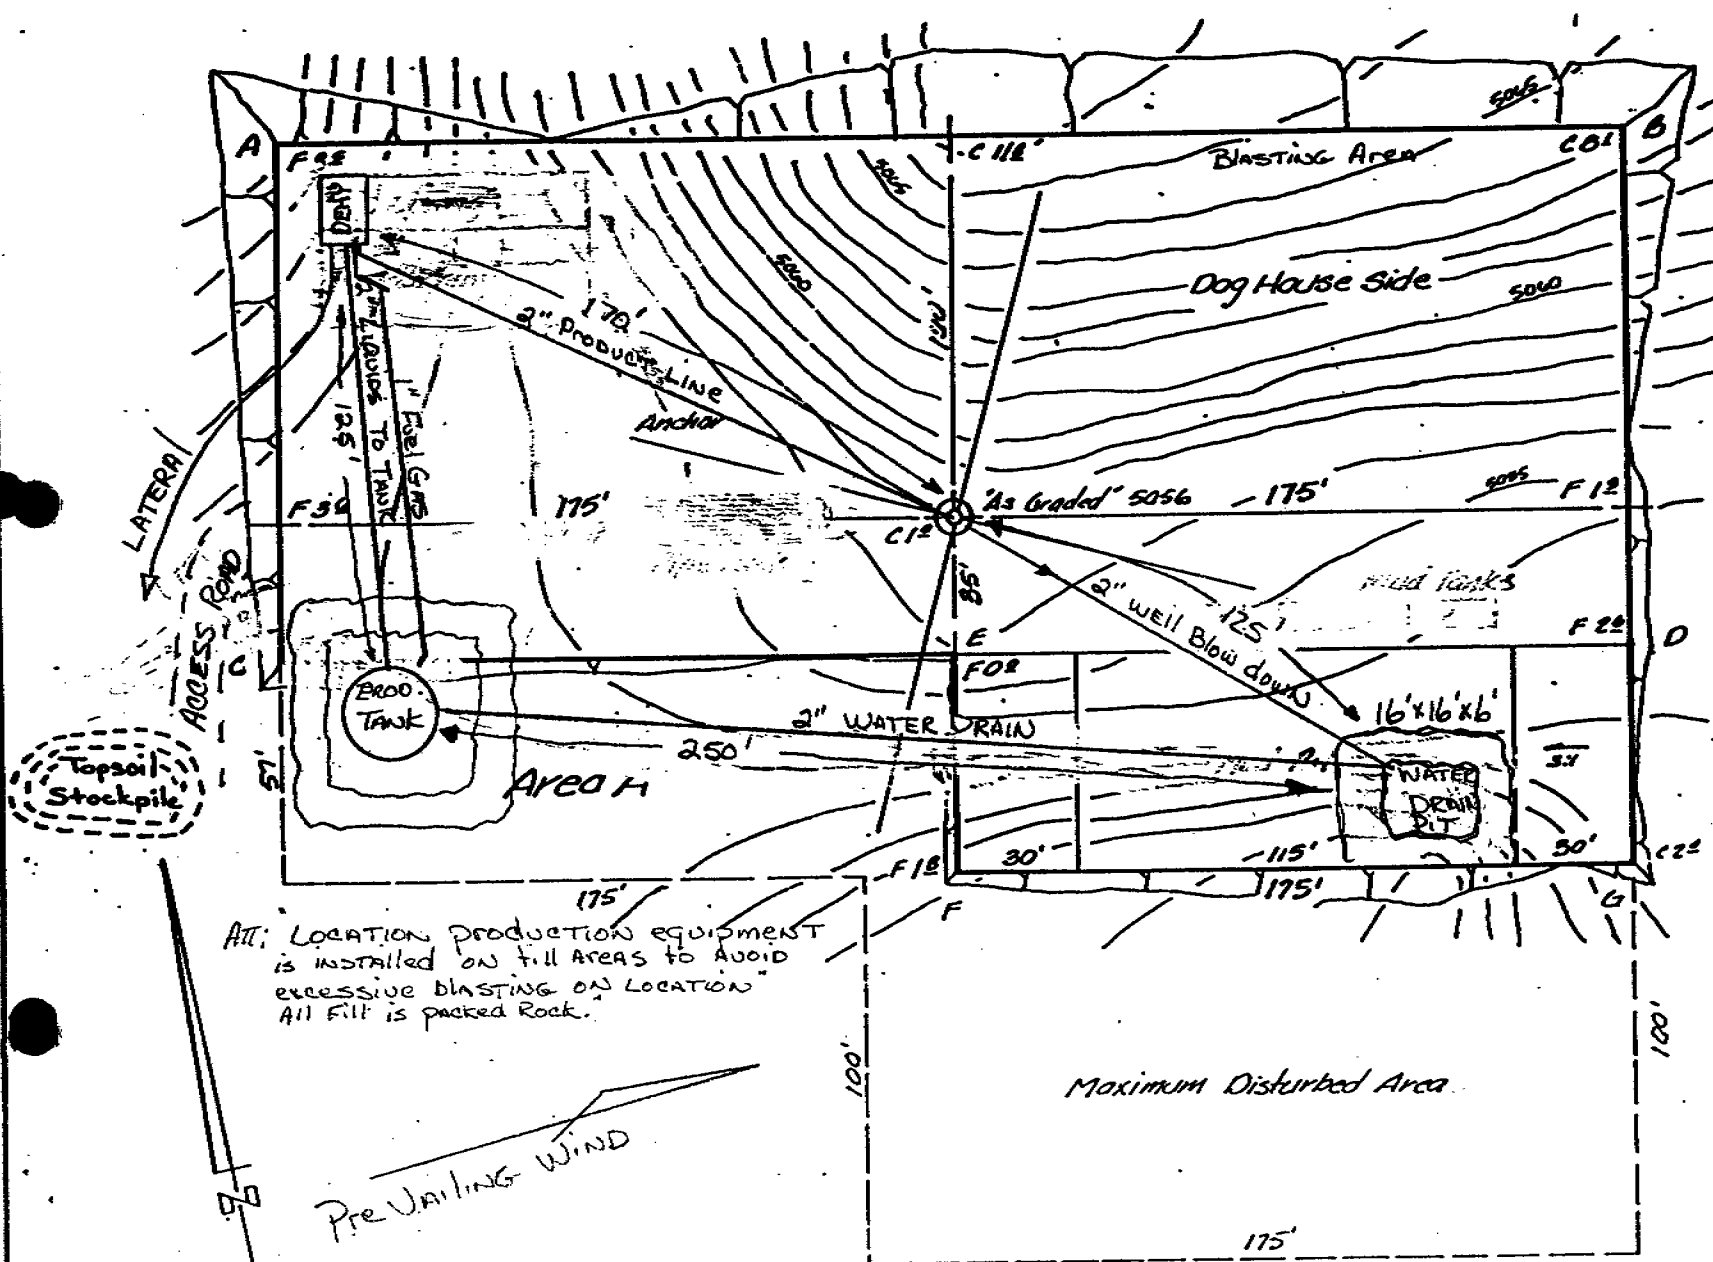 A
B
C 11.2'
Blasting Area
C 8.1
5065
5065
DEHY
Dog House Side
5060
5060
170'
2" Product Line
Anchor
2" Liquids To Tank
1" Fuel Gas
125'
LATERAL
ACCESS ROAD
175'
"As Graded" 5056
175'
5055
Mud Tanks
85'
2" Well Blow down
125'
E
D
C
PROD.
TANK
2" WATER DRAIN
250'
16'x16'x6'
WATER
DRAIN
PIT
Topsoil
Stockpile
57'
Area H
30'
115'
30'
175'
175'
F
G
Att: LOCATION production equipment
is INSTALLED ON fill AREAS to AVOID
excessive BLASTING ON LOCATION"
All Fill is packed Rock."
100'
100'
Maximum Disturbed Area
PreVailing WIND
175'